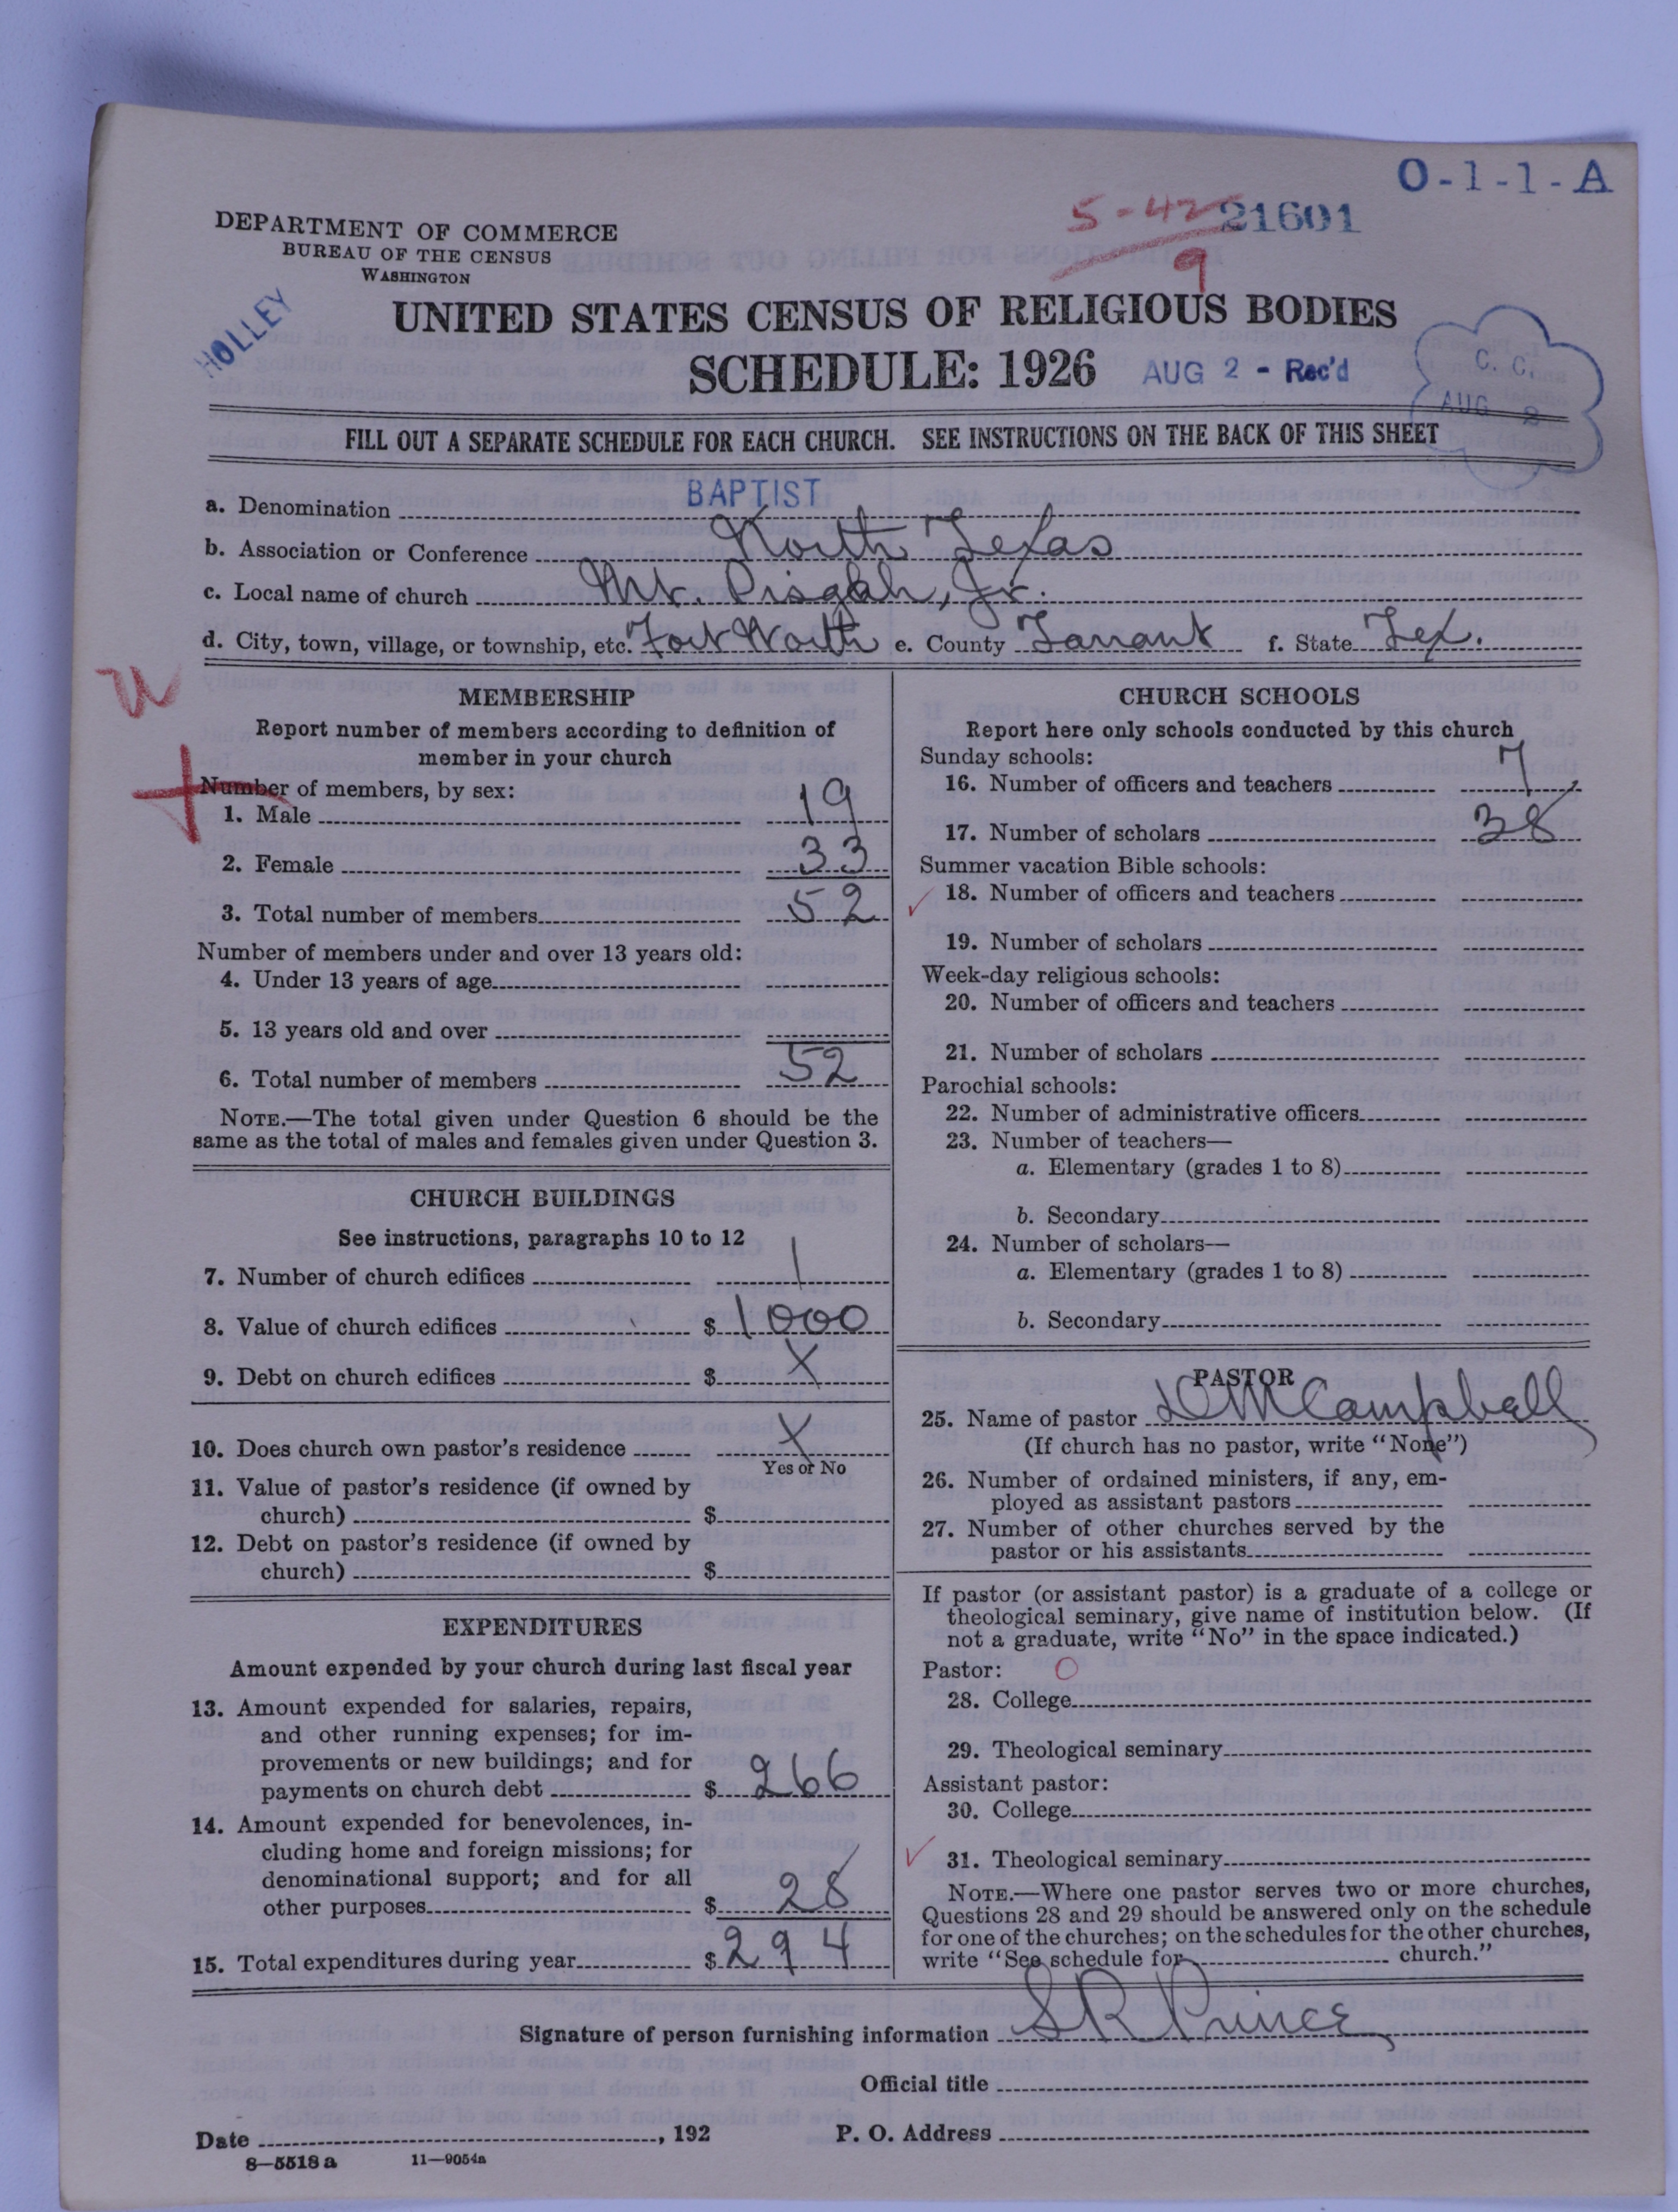 O-1-1-A
5-42 21601
9
DEPARTMENT OF COMMERCE
BUREAU OF THE CENSUS
WASHINGTON
HOLLEY
UNITED STATES CENSUS OF RELIGIOUS BODIES
SCHEDULE: 1926 AUG 2 - Rec'd
C. C.
AUG 2
FILL OUT A SEPARATE SCHEDULE FOR EACH CHURCH. SEE INSTRUCTIONS ON THE BACK OF THIS SHEET
a. Denomination BAPTIST
b. Association or Conference North Texas
c. Local name of church Mt. Pisgah, Jr.
d. City, town, village, or township, etc. Fort Worth e. County Tarrant f. State Tex.
MEMBERSHIP
Report number of members according to definition of
member in your church
Number of members, by sex:
1. Male 19
2. Female 33
3. Total number of members 52
Number of members under and over 13 years old:
4. Under 13 years of age
5. 13 years old and over
6. Total number of members 52
NOTE.—The total given under Question 6 should be the
same as the total of males and females given under Question 3.
CHURCH BUILDINGS
See instructions, paragraphs 10 to 12
7. Number of church edifices 1
8. Value of church edifices $ 1000
9. Debt on church edifices $ X
10. Does church own pastor's residence X
Yes or No
11. Value of pastor's residence (if owned by
church) $
12. Debt on pastor's residence (if owned by
church) $
EXPENDITURES
Amount expended by your church during last fiscal year
13. Amount expended for salaries, repairs,
and other running expenses; for im-
provements or new buildings; and for
payments on church debt $ 266
14. Amount expended for benevolences, in-
cluding home and foreign missions; for
denominational support; and for all
other purposes $ 28
15. Total expenditures during year $ 294
CHURCH SCHOOLS
Report here only schools conducted by this church
Sunday schools:
16. Number of officers and teachers 7
17. Number of scholars 38
Summer vacation Bible schools:
18. Number of officers and teachers
19. Number of scholars
Week-day religious schools:
20. Number of officers and teachers
21. Number of scholars
Parochial schools:
22. Number of administrative officers
23. Number of teachers—
a. Elementary (grades 1 to 8)
b. Secondary
24. Number of scholars—
a. Elementary (grades 1 to 8)
b. Secondary
PASTOR
25. Name of pastor D M Campbell
(If church has no pastor, write "None")
26. Number of ordained ministers, if any, em-
ployed as assistant pastors
27. Number of other churches served by the
pastor or his assistants
If pastor (or assistant pastor) is a graduate of a college or
theological seminary, give name of institution below. (If
not a graduate, write "No" in the space indicated.)
Pastor: O
28. College
29. Theological seminary
Assistant pastor:
30. College
31. Theological seminary
NOTE.—Where one pastor serves two or more churches,
Questions 28 and 29 should be answered only on the schedule
for one of the churches; on the schedules for the other churches,
write "See schedule for church."
Signature of person furnishing information S R Prince
Official title
Date , 192
P. O. Address
8—5518 a 11—9054a